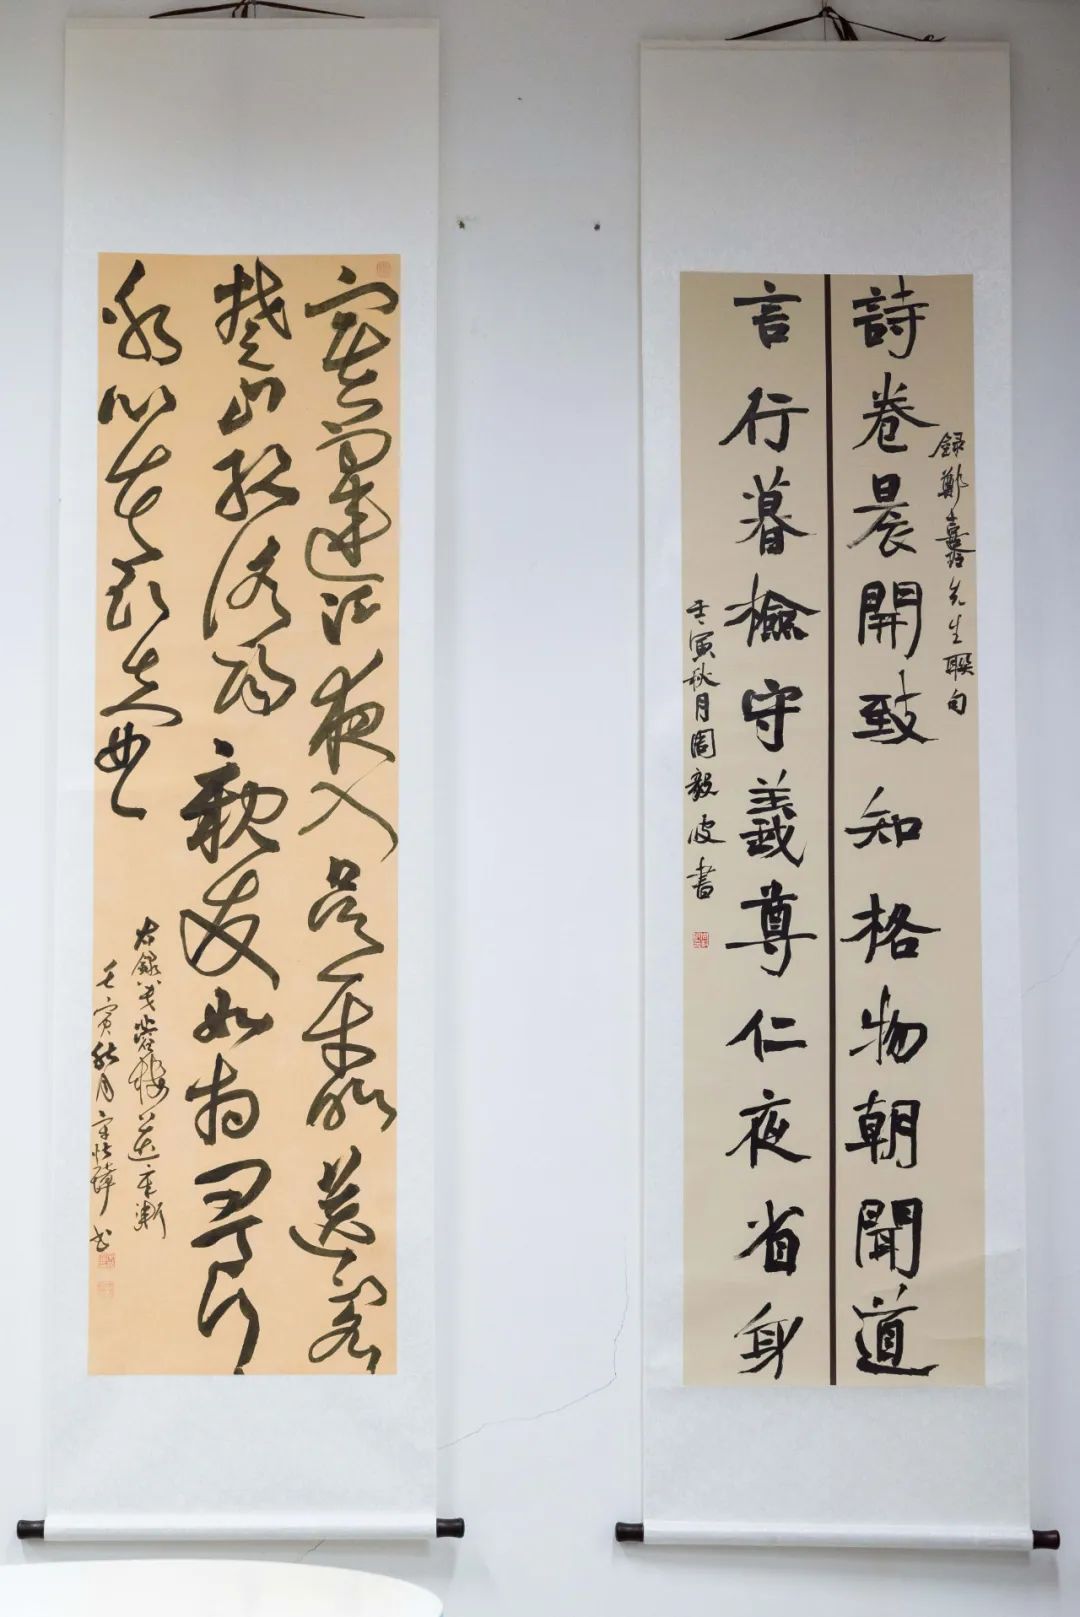 録鄭先生聯句
詩卷晨開致知格物朝聞道
言行暮檢守義尊仁夜省身
壬寅秋月周毅書
寒雨連江夜入吳平明送客
楚山孤洛陽親友如相問一片
冰心在玉壺
右錄芙蓉樓送辛漸
壬寅秋月宋书